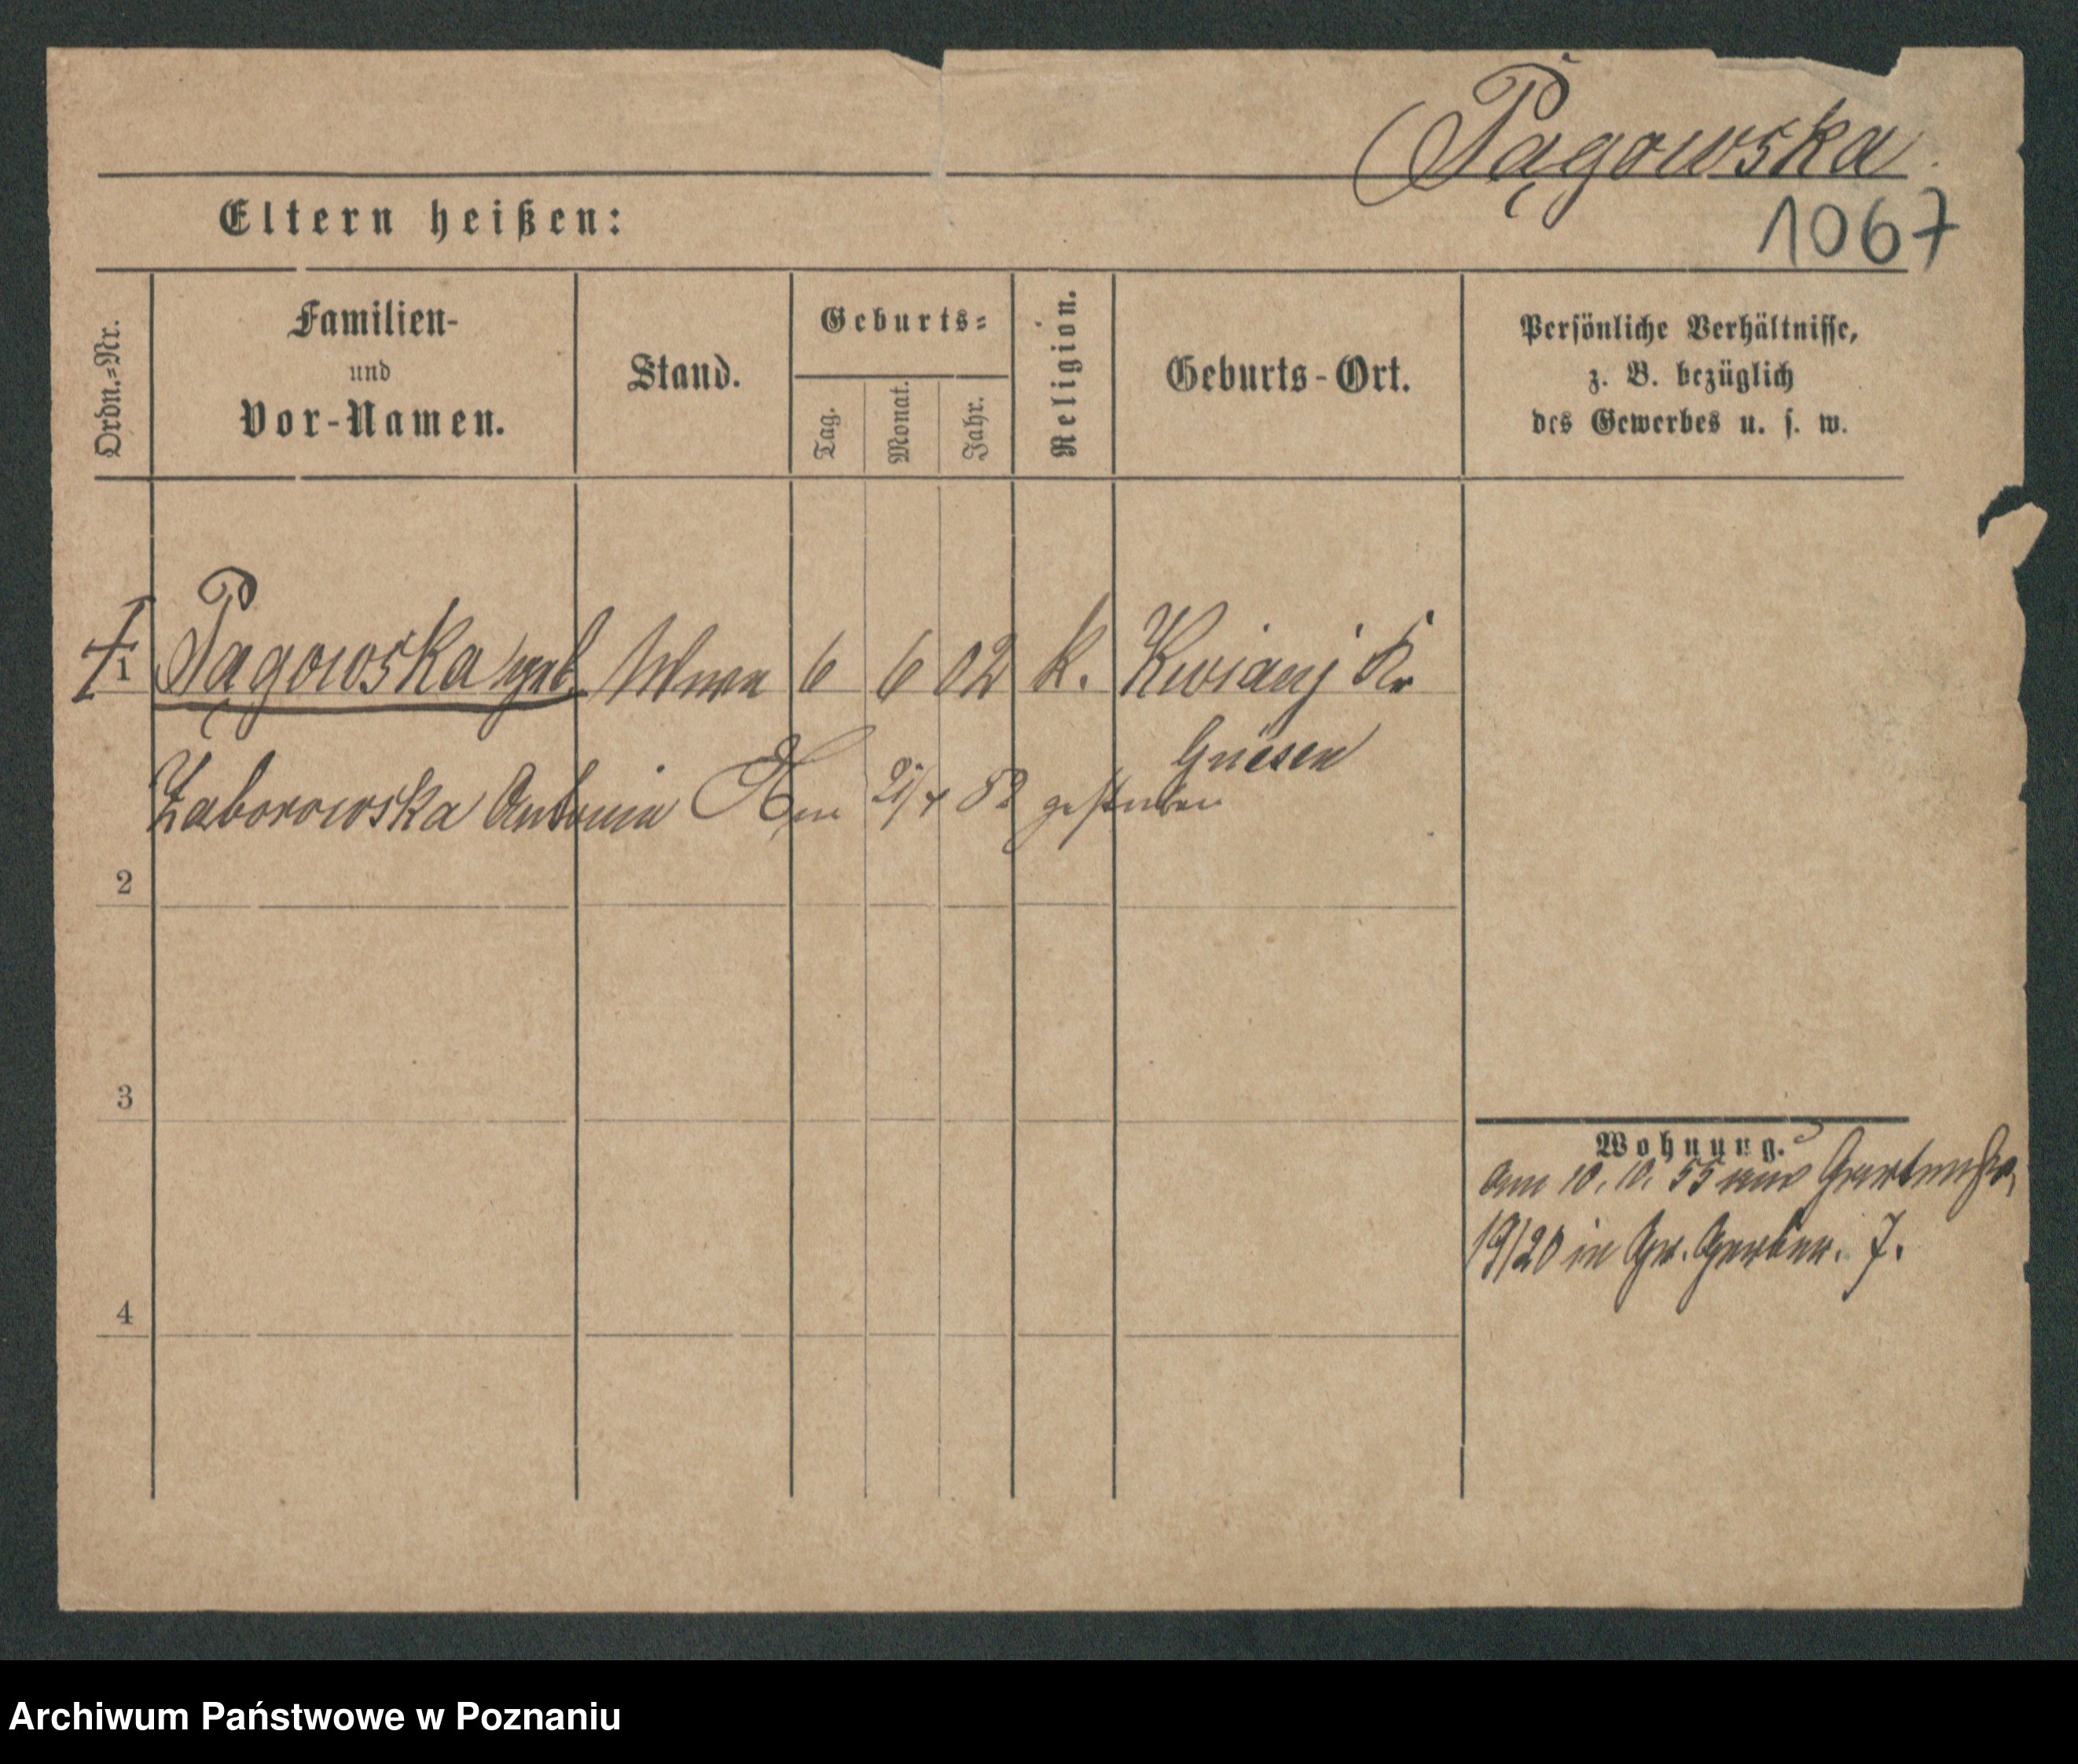 Pągowska
1067
Eltern heißen:
Ordn.=Nr.
Familien-
und
Vor-Namen.
Stand.
Geburts=
Tag.
Monat.
Jahr.
Religion.
Geburts-Ort.
Persönliche Verhältnisse,
z. B. bezüglich
des Gewerbes u. s. w.
1 Pągowska geb. Wwe 6 6 02 k. Kr
Gnesen
Zaborowska Antonia Am 21/4 gestorben
2
3
4
Wohnung.
Am 10. 10. 55 aus Gartenstr.
19/20 in Gr. Gerber. 7.
Archiwum Państwowe w Poznaniu